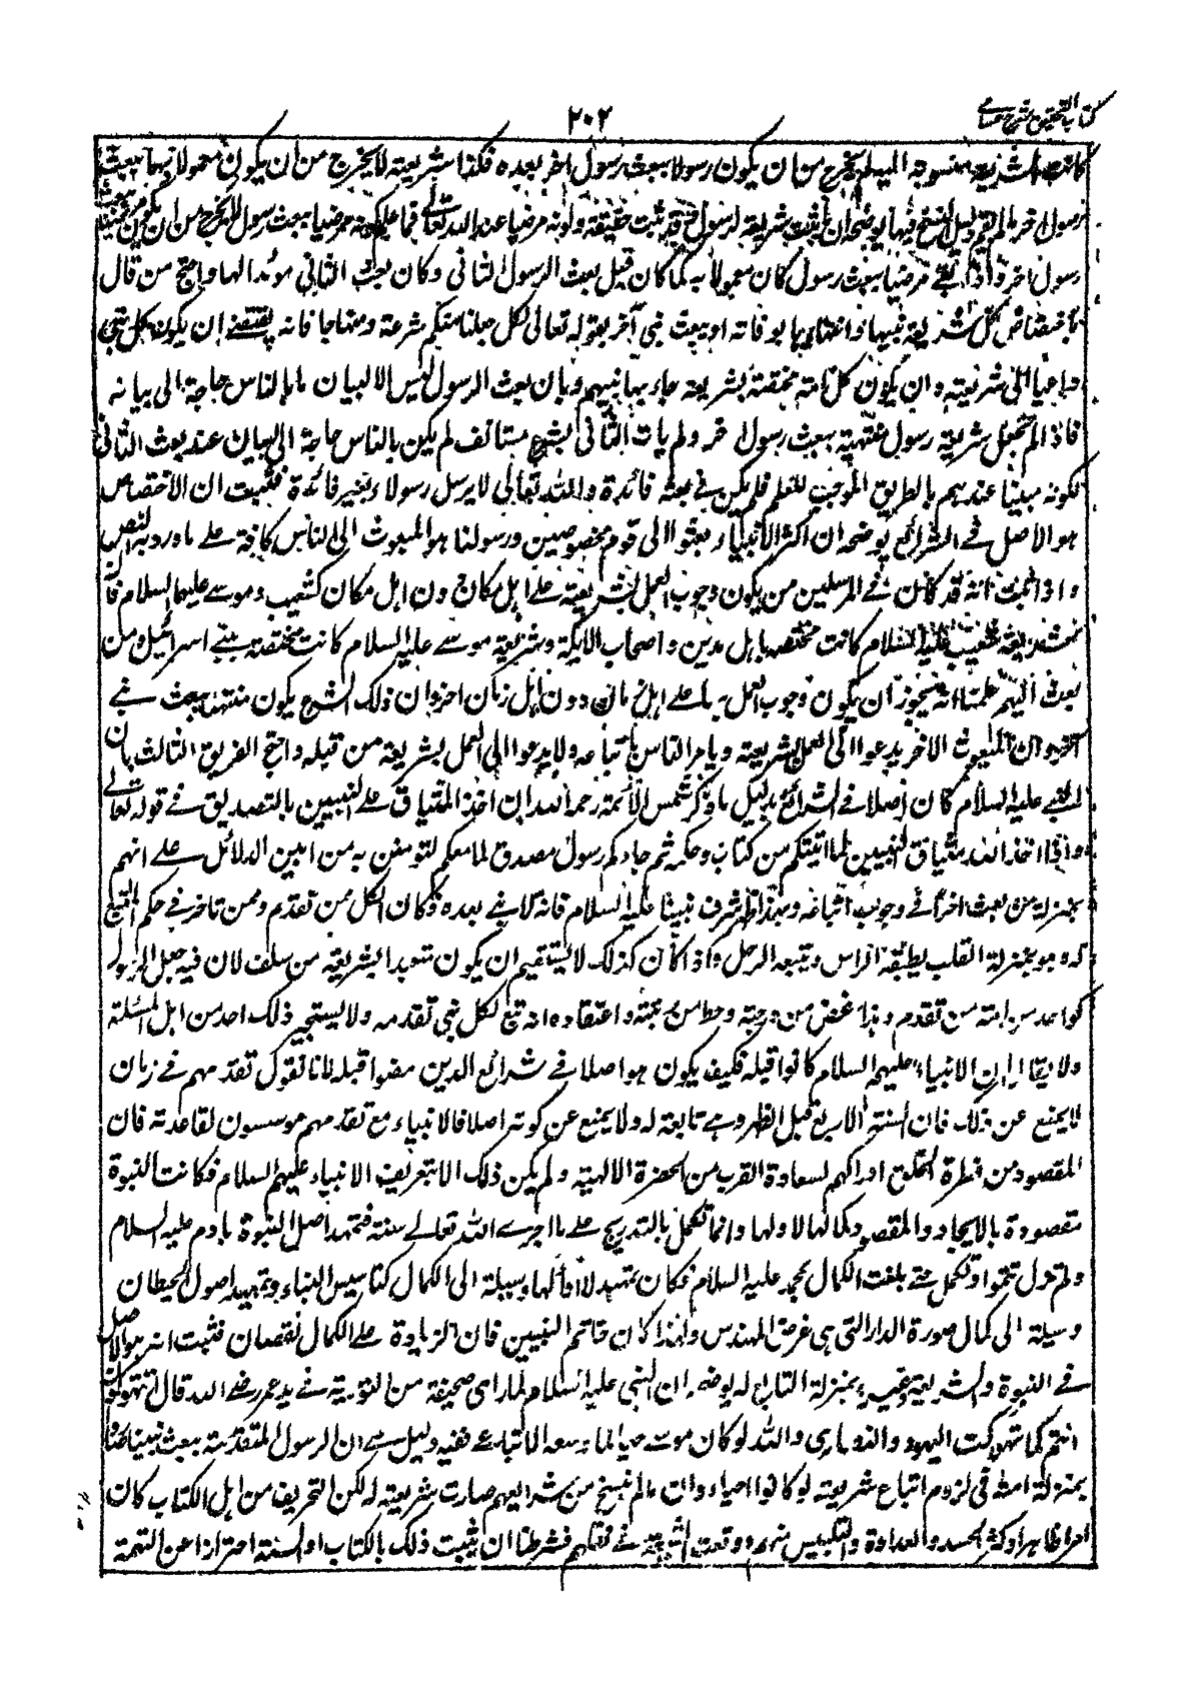 كتاب التحقيق شرح حسامي
٢٠٢
كانت الشريعة منسوبة اليه لم يخرج من ان يكون رسولا ببعث رسول آخر بعده فكذا شريعته لا يخرج من ان يكون معمولا بها ببعث
رسول آخر ما لم يقم دليل النسخ فيها يوضحه ان ما ثبت شريعة لرسول فقد ثبت حقيقته وكونه مرضيا عند الله تعالى فما علم كونه مرضيا ببعث رسول لا يخرج من ان يكون مرضيا ببعث
رسول آخر واذا بقي مرضيا ببعث رسول كان معمولا به كما كان قبل بعث الرسول الثاني وكان بعث الثاني مؤيدا لها واحتج من قال
باختصاص كل شريعة بنبيها وانتهائها بوفاته او ببعث نبي آخر بقوله تعالى لكل جعلنا منكم شرعة ومنهاجا فانه يقتضي ان يكون كل نبي
داعيا الى شريعته وان يكون كل امة مختصة بشريعة جاء بها نبيهم وبان بعث الرسول ليس الا لبيان ما بالناس حاجة الى بيانه
فاذا لم تجعل شريعة رسول منتهية ببعث رسول آخر ولم يات الثاني بشرع مستانف لم يكن بالناس حاجة الى البيان عند بعث الثاني
لكونه مبينا عندهم بالطريق الموجب للعلم فلم يكن في بعثه فائدة والله تعالى لا يرسل رسولا بغير فائدة فثبت ان الاختصاص
هو الاصل في الشرائع يوضحه ان اكثر الانبياء بعثوا الى قوم مخصوصين ورسولنا هو المبعوث الى الناس كافة على ما ورد به النص
واذا ثبت انه قد كان في المرسلين من يكون وجوب العمل بشريعته على اهل مكان دون اهل مكان كشعيب وموسى عليهما السلام فان
شريعة شعيب عليه السلام كانت مختصة باهل مدين واصحاب الايكة وشريعة موسى عليه السلام كانت مختصة ببني اسرائيل ومن
بعث اليهم علمنا انه يجوز ان يكون وجوب العمل بها على اهل زمان دون اهل زمان آخر وان ذلك الشرع يكون منتهيا ببعث نبي
آخر وان المبعوث الآخر يدعو الى العمل بشريعته ويامر الناس باتباعه ولا يدعو الى العمل بشريعة من قبله واحتج الفريق الثالث بان
النبي عليه السلام كان اصلا في الشرائع بدليل ما ذكر شمس الائمة رحمه الله ان اخذ الميثاق على النبيين بالتصديق في قوله تعالى
واذ اخذ الله ميثاق النبيين لما اتيتكم من كتاب وحكمة ثم جاءكم رسول مصدق لما معكم لتؤمنن به من ابين الدلائل على انهم
بمنزلة من بعث آخرا في وجوب اتباعه وبهذا ظهر شرف نبينا عليه السلام فانه لا نبي بعده فكان الكل من تقدم ومن تاخر في حكم المتبع
له وهو بمنزلة القلب يطيعه الراس ويتبعه الرجل واذا كان كذلك لا يستقيم ان يكون متعبدا بشريعة من سلف لان فيه جعل الرسول
كواحد من امته من تقدم وهذا غض من درجته وحط من رتبته واعتقاد انه تبع لكل نبي تقدمه ولا يستجيز ذلك احد من اهل الملة
ولا يقال ان الانبياء عليهم السلام كانوا قبله فكيف يكون هو اصلا في شرائع الذين مضوا قبله لانا نقول تقدمهم في زمان
لا يمنع عن ذلك فان السنة الاربع قبل الظهر وهي تابعة له ولا يمنع عن كونه اصلا فالانبياء مع تقدمهم مؤسسون لقاعدته فان
المقصود من فطرة الخلق ادراكهم لسعادة القرب من الحضرة الالهية ولم يكن ذلك الا بتعريف الانبياء عليهم السلام فكانت النبوة
مقصودة بالايجاد والمقصود كمالها لا اولها وانما تكمل بالتدريج على ما اجرى الله تعالى سنته فتمهد اصل النبوة بادم عليه السلام
ولم تزل تنمو وتكمل حتى بلغت الكمال بمحمد عليه السلام فكان تمهيد اوائلها وسيلة الى الكمال كتاسيس البناء وتمهيد اصول الحيطان
وسيلة الى كمال صورة الدار التي هي غرض المهندس ولهذا كان خاتم النبيين فان الزيادة على الكمال نقصان فثبت انه هو الاصل
في النبوة والشريعة وغيره بمنزلة التابع له يوضحه ان النبي عليه السلام لما راى صحيفة من التورية في يد عمر رضي الله قال امتهوكون
انتم كما تهوكت اليهود والنصارى والله لو كان موسى حيا لما وسعه الا اتباعي ففيه دليل على ان الرسول المتقدم ببعث نبينا صار
بمنزلة امته في لزوم اتباع شريعته لو كانوا احياء وان ما لم ينسخ من شرائعهم صارت شريعة له لكن التحريف من اهل الكتاب كان
امرا ظاهرا وكثر الحسد والعداوة والتلبيس منهم ووقعت الشبهة في نقلهم فشرطنا ان يثبت ذلك بالكتاب او السنة احترازا عن التهمة